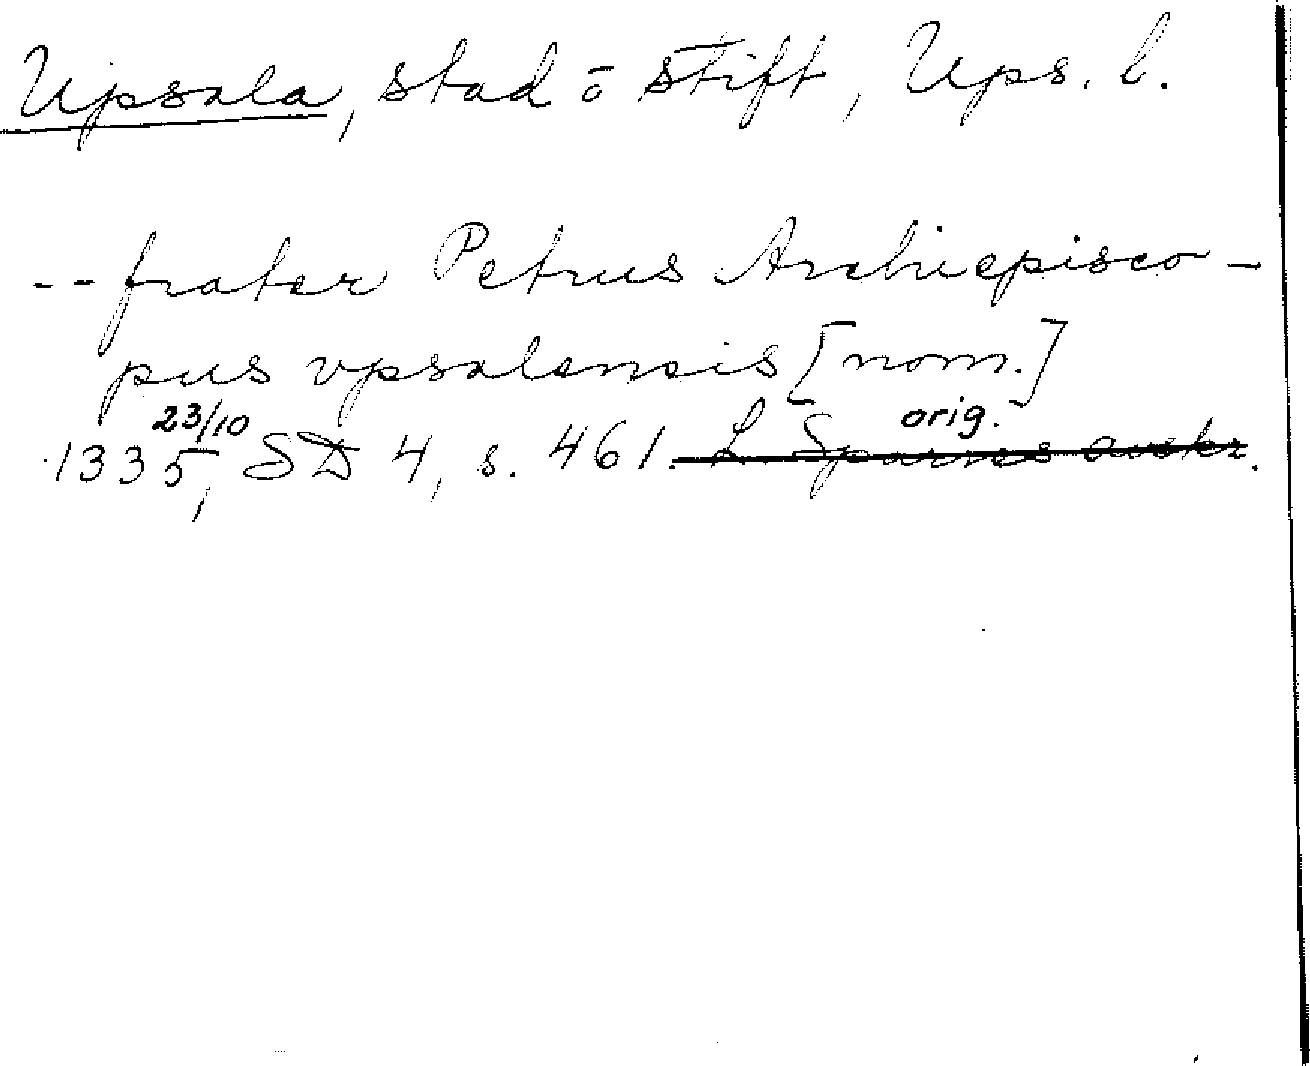 Upsala, stad o stift, Ups. l.
-- frater Petrus Archiepisco-
pus vpsalensis [nom.]
23/10 orig.
1335, SD 4, s. 461. L. Sparres avskr.